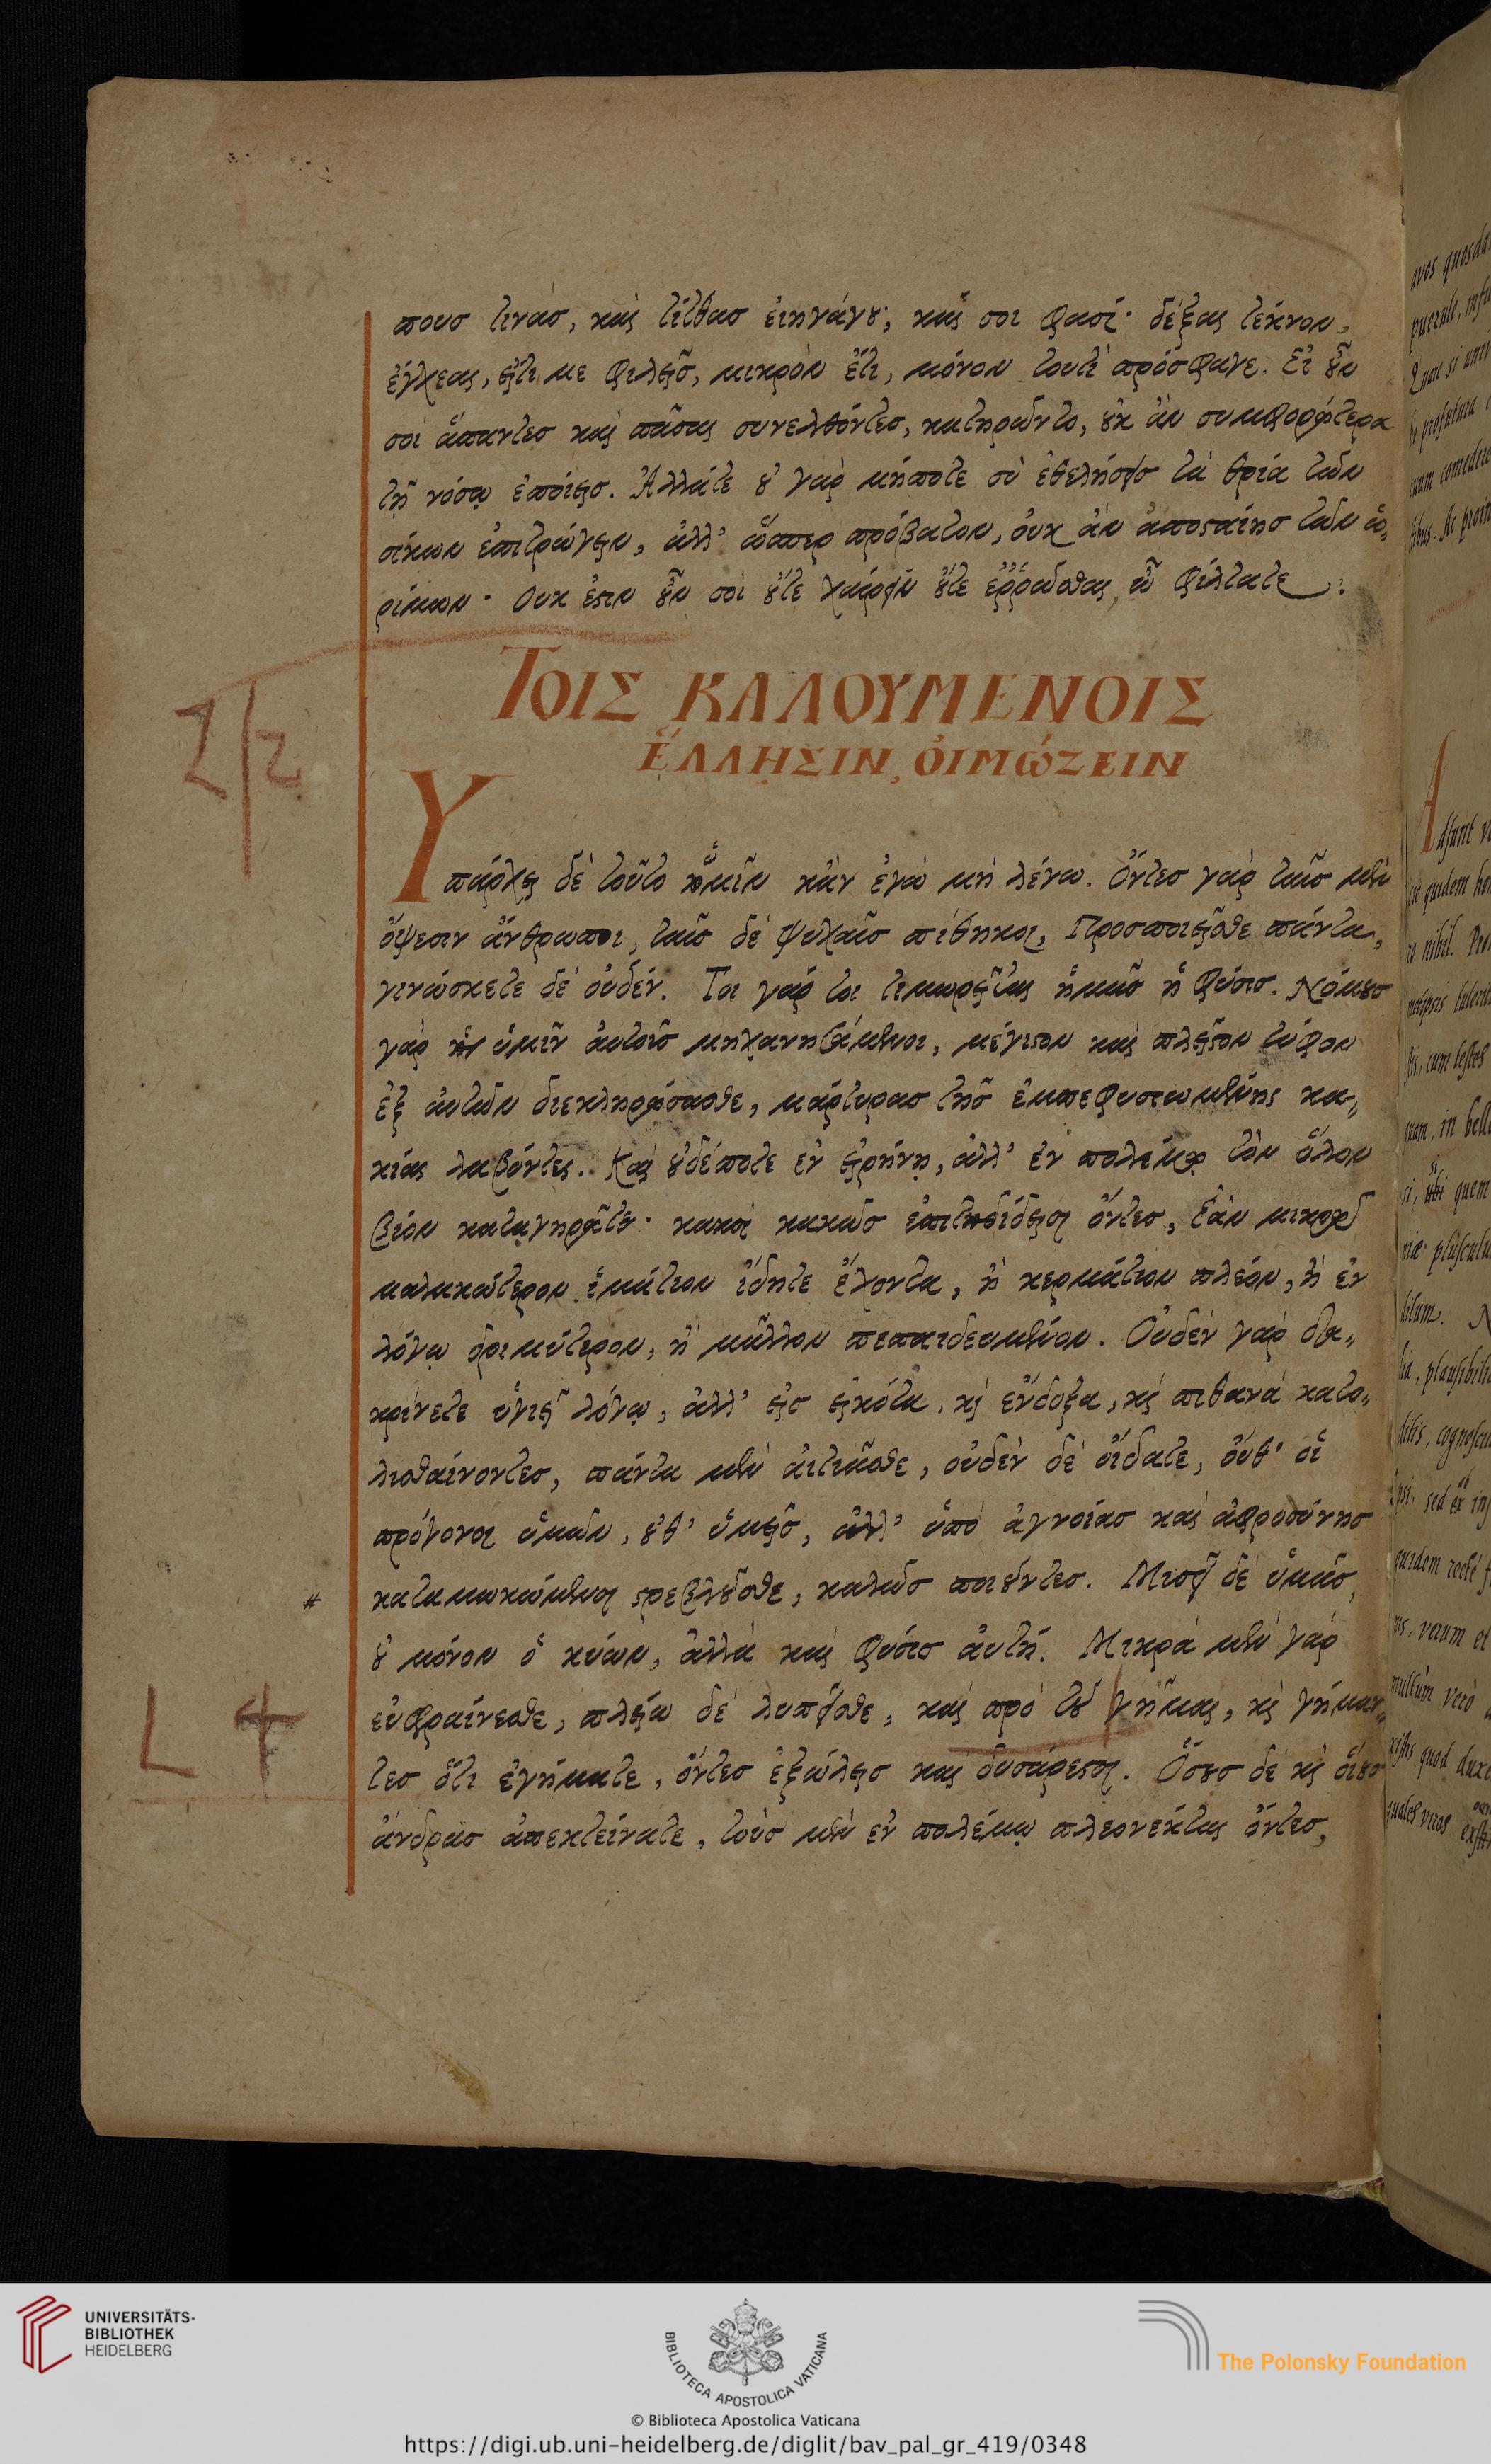 πους τινὰς, καὶ τίτθας εἰσηγάγου, καί σοι φασί· δέξαι τέκνον,
ἔγχεαι, εἴτι με φιλεῖς, μικρὸν ἔτι, μόνον τουτὶ πρόσφαγε. Εἰ οὖν
σοὶ ἅπαντες καὶ πᾶσαι συνελθόντες, κατηρῶντο, οὐκ ἂν συμφορώτερα
τῇ νόσῳ ἐποίεις. Ἀλλάτε οὐ γὰρ μήποτε σὺ ἐθελήσεις τὰ θρία τῶν
σύκων ἐπιτρώγειν, ἀλλ' ὥσπερ πρόβατον, οὐκ ἂν ἀποσταίης τῶν ὡ-
ρίμων. Ουκ ἔστιν οὖν σοὶ οὔτε χαίρειν οὔτε ἐῤῥῶσθαι, ὦ φίλτατε:
ΤΟΙΣ ΚΑΛΟΥΜΕΝΟΙΣ
ἝΛΛΗΣΙΝ, ΟἸΜΏΖΕΙΝ
Υπάρχει δὲ τοῦτο ὑμῖν κἂν ἐγὼ μὴ λέγω. Ὄντες γὰρ ταῖς μὲν
ὄψεσιν ἄνθρωποι, ταῖς δὲ ψυχαῖς πίθηκοι, Προσποιεῖσθε πάντα,
γινώσκετε δὲ οὐδέν. Τοι γάρ τοι τιμωρεῖται ἡμᾶς ἡ φύσις. Νόμους
γὰρ ὑμῖν αὐτοῖς μηχανησάμενοι, μέγιστον καὶ πλεῖστον τύφον
ἐξ αὐτῶν διεκληρώσασθε, μάρτυρας τῆς ἐμπεφυσιωμένης κα-
κίας λαβόντες. Καὶ οὐδέποτε ἐν εἰρήνῃ, ἀλλ' ἐν πολέμῳ τὸν ὅλον
βίον καταγηρᾶτε· κακοὶ κακῶς ἐπιτηδίδειοι ὄντες, Ἐὰν μικρῷ
μαλακώτερον ἱμάτιον ἴδητε ἔχοντα, ἢ κερμάτιον πλέον, ἢ ἐν
λόγῳ δριμύτερον, ἢ μᾶλλον πεπαιδευμένον. Οὐδὲν γὰρ δια-
κρίνετε ὑγιεῖ λόγῳ, ἀλλ' εἰς εἰκότα, καὶ ἔνδοξα, καὶ πιθανὰ κατο-
λισθαίνοντες, πάντα μὲν αἰτιᾶσθε, οὐδὲν δὲ οἴδατε, οὔθ' οἱ
πρόγονοι ὑμῶν, οὔθ' ὑμεῖς, ἀλλ' ὑπὸ ἀγνοίας καὶ ἀφροσύνης
καταμωκώμενοι στρεβλοῦσθε, καλῶς ποιοῦντες. Μισεῖ δὲ ὑμᾶς,
οὐ μόνον ὁ κύων, ἀλλὰ καὶ φύσις αὐτή. Μικρὰ μὲν γὰρ
εὐφραίνεσθε, πλείω δὲ λυπεῖσθε, καὶ πρὸ τοῦ γῆμαι, καὶ γήμαν-
τες ὅτι ἐγήματε, ὄντες ἐξώλεις καὶ δυσάρεστοι. Ὅσους δὲ καὶ οἵους
ἄνδρας ἀπεκτείνατε, τοὺς μὲν ἐν πολέμῳ πλεονέκται ὄντες,
UNIVERSITÄTS-
BIBLIOTHEK
HEIDELBERG
BIBLIOTECA APOSTOLICA VATICANA
The Polonsky Foundation
© Biblioteca Apostolica Vaticana
https://digi.ub.uni-heidelberg.de/diglit/bav_pal_gr_419/0348